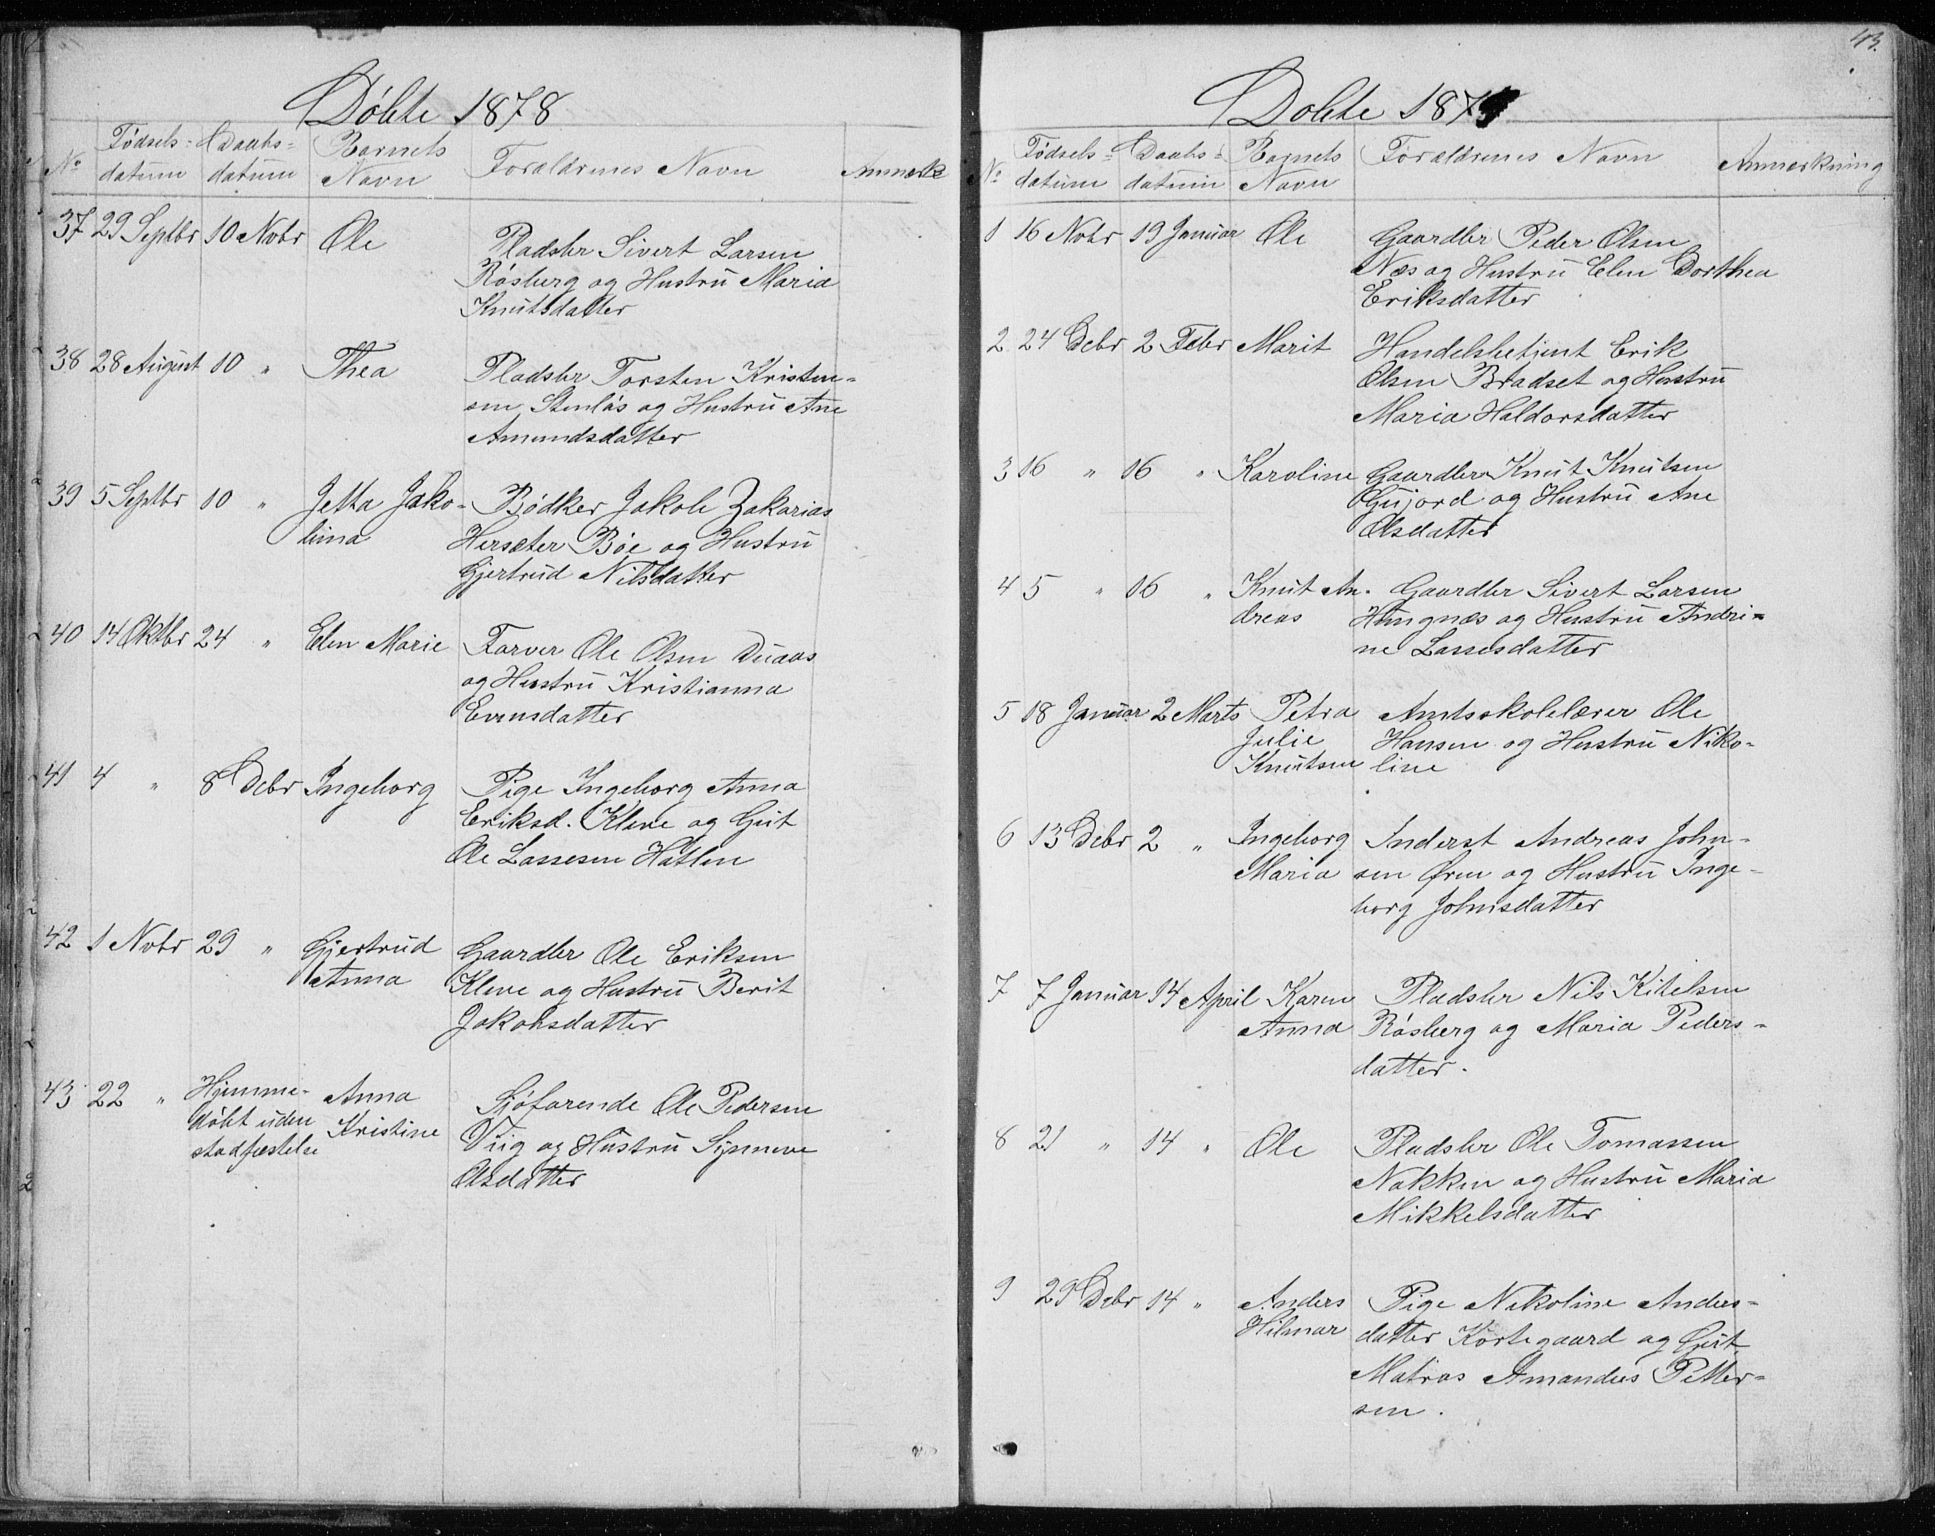 Døbte 1878
No Fødselsdatum Daabsdatum Barnets Navn Forældrenes Navn Anmerk
37 29 Septbr 10 Novbr Ole Pladsbr Sivert Larsen
Røsberg og Hustru Maria
Knutsdatter
38 28 August 10 " Thea Pladsbr Torsten Kristen-
sen Stenløs og Hustru Ane
Amundsdatter
39 5 Septbr 10 " Jetta Jako- Bødker Jakob Zakarias
bina Hersæter Bøe og Hustru
Gjertrud Nilsdatter
40 14 Oktbr 24 " Elen Marie Farver Ole Olsen
og Hustru Kristianna
Evensdatter
41 4 " 8 Debr Ingeborg Pige Ingeborg Anna
Eriksd. Kleve og Gut
Ole Lassesen Hatlen
42 1 Novbr 29 " Gjertrud Gaardbr Ole Eriksen
Anna Kleve og Hustru Berit
Jakobsdatter
43 22 " Hjemme- Anna Sjøfarende Ole Pedersen
døbt uden Kristine Viig og Hustru Synneve
stadfæstelse Olsdatter
43.
Dobte 1879
No Fødsels= datum Daabs= datum Barnets Navn Forældrenes Navn Anmerkning
1 16 Novbr 19 Januar Ole Gaardbr Peder Olsen
Næs og Hustru Elen Dorthea
Eriksdatter
2 24 Debr 2 Febr Marit Handelsbetjent Erik
Olsen Bradset og Hustru
Maria Haldorsdatter
3 16 " 16 " Karoline Gaardbr Knut Knutsen
Gujord og Hustru Ane
Olsdatter
4 5 " 16 " Knut An- Gaardbr Sivert Larsen
dreas Hungnæs og Hustru Andri=
ne Lassesdatter
5 18 Januar 2 Marts Petra Amtsskolelærer Ole
Julie Hansen og Hustru Niko-
Knutsen line
6 13 Debr 2 " Ingeborg Inderst Andreas John-
Maria sen Ören og Hustru Inge-
borg Johnsdatter
7 7 Januar 14 April Karen Pladsbr Nils Kitelsen
Anna Røsberg og Maria Peders-
datter.
8 21 " 14 " Ole Pladsbr Ole Tomassen
Nakken og Hustru Maria
Mikkelsdatter
9 29 Debr 14 " Anders Pige Nikoline Anders-
Hilmar datter Kortgaard og Gut
Matros Amandus Petter-
sen.